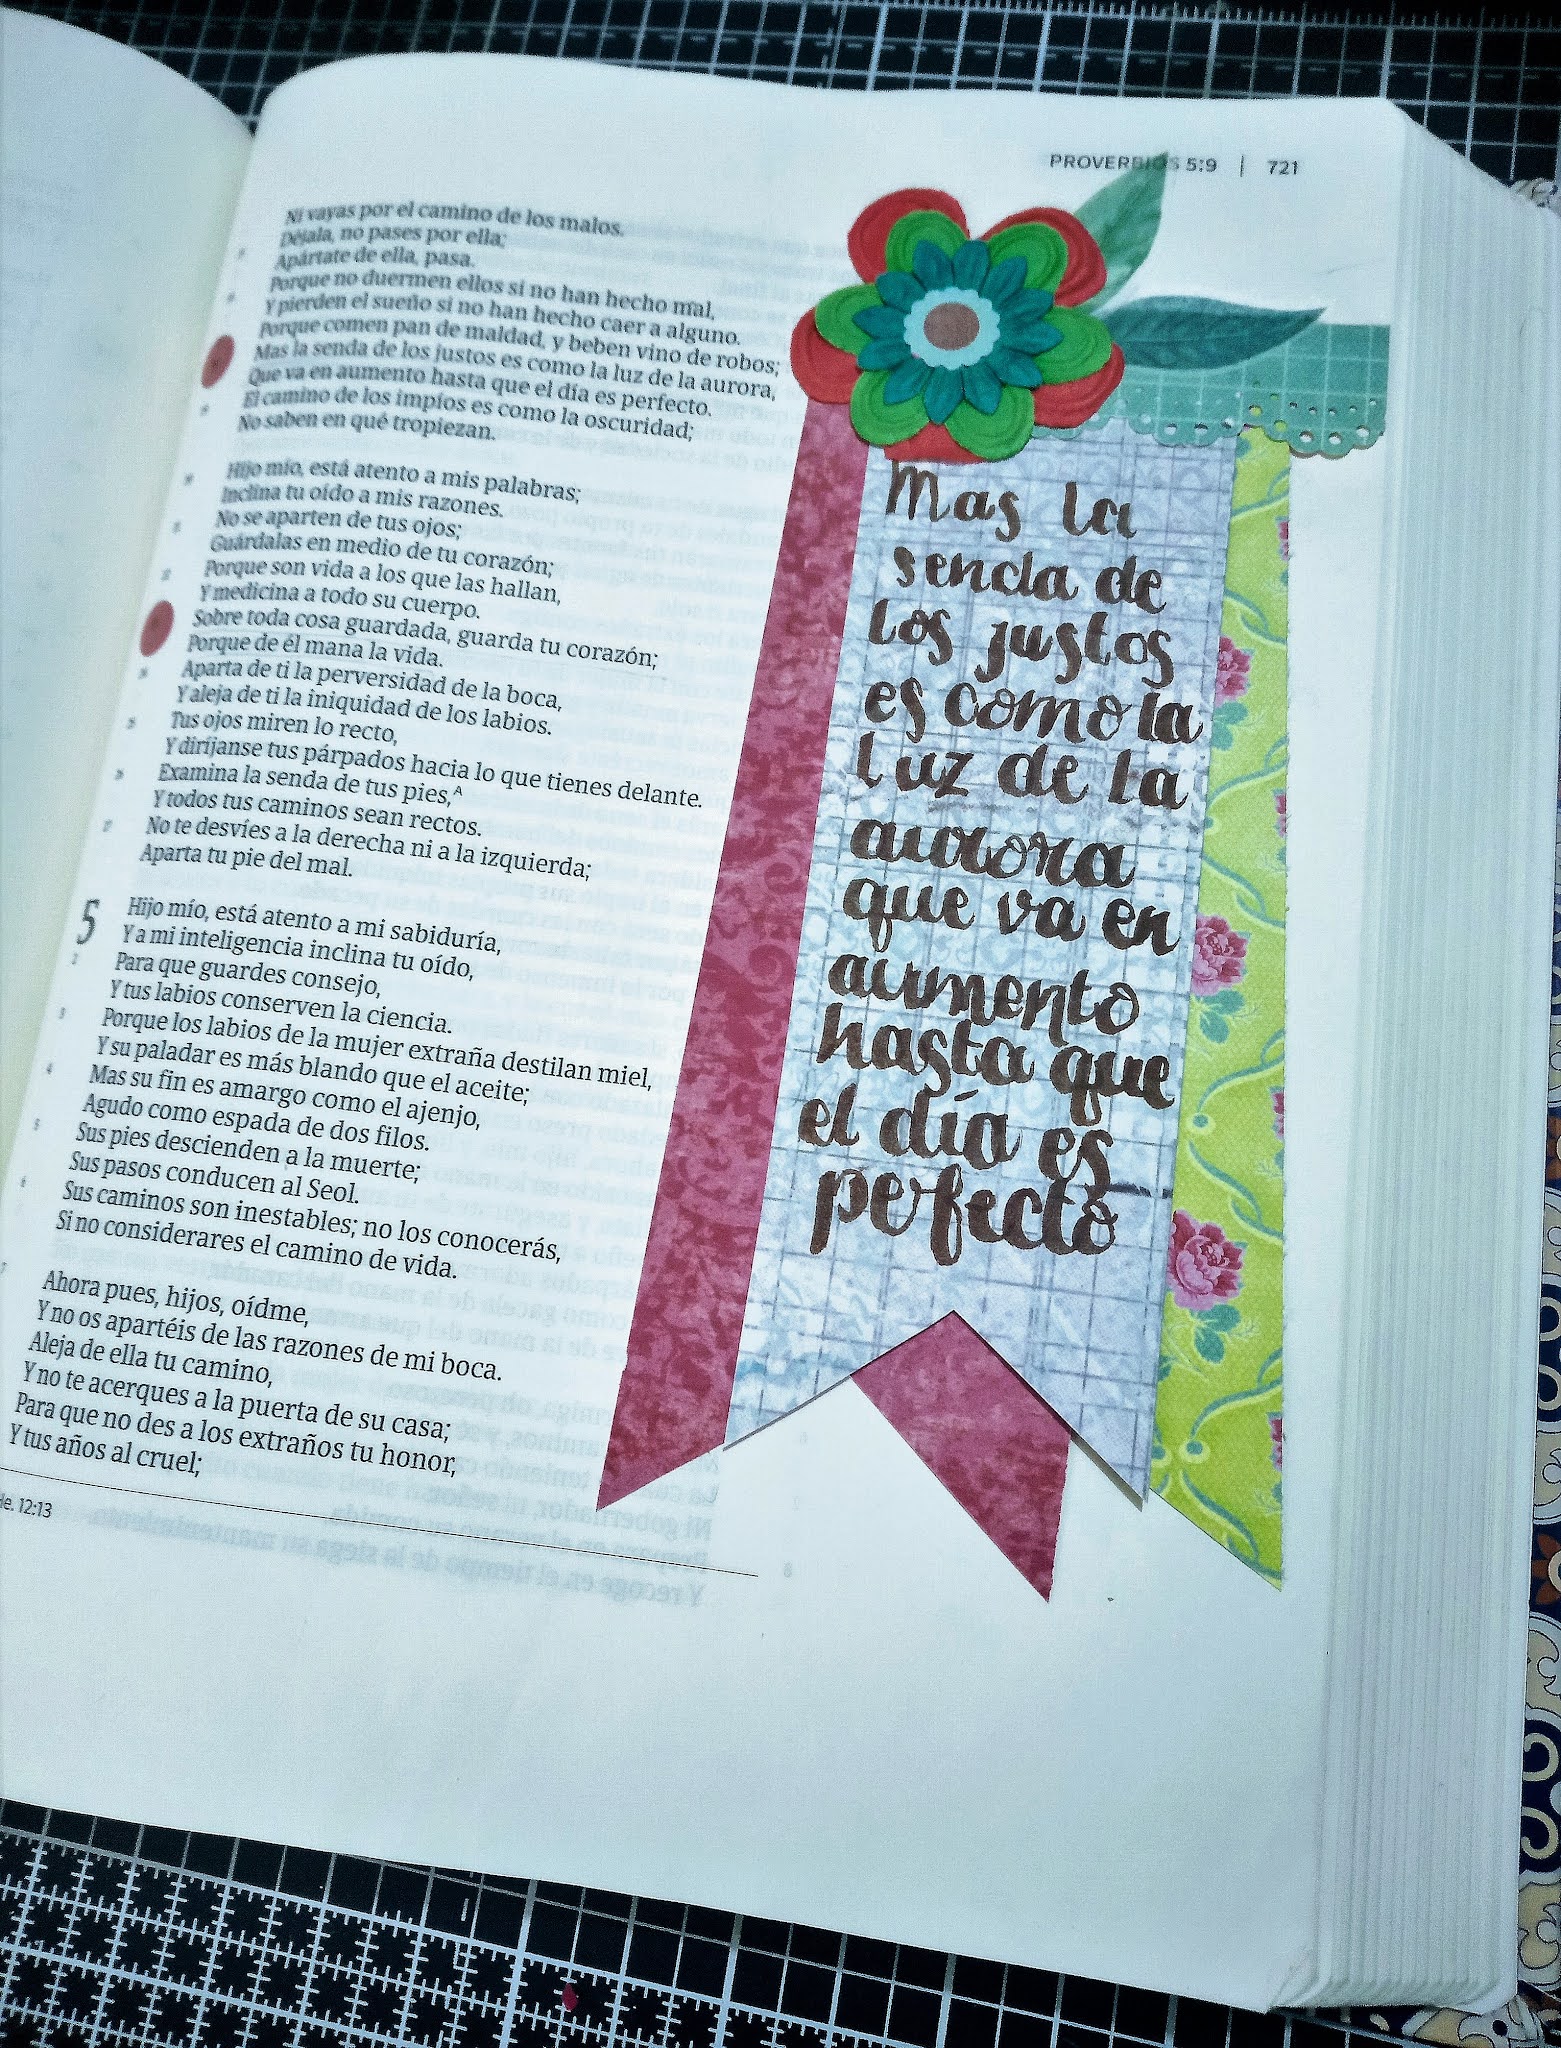 PROVERBIOS 5:9 | 721
Ni vayas por el camino de los malos.
Déjala, no pases por ella;
Apártate de ella, pasa.
Porque no duermen ellos si no han hecho mal,
Y pierden el sueño si no han hecho caer a alguno.
Porque comen pan de maldad, y beben vino de robos;
Mas la senda de los justos es como la luz de la aurora,
Que va en aumento hasta que el día es perfecto.
El camino de los impíos es como la oscuridad;
No saben en qué tropiezan.
Hijo mío, está atento a mis palabras;
Inclina tu oído a mis razones.
No se aparten de tus ojos;
Guárdalas en medio de tu corazón;
Porque son vida a los que las hallan,
Y medicina a todo su cuerpo.
Sobre toda cosa guardada, guarda tu corazón;
Porque de él mana la vida.
Aparta de ti la perversidad de la boca,
Y aleja de ti la iniquidad de los labios.
Tus ojos miren lo recto,
Y diríjanse tus párpados hacia lo que tienes delante.
Examina la senda de tus pies,A
Y todos tus caminos sean rectos.
No te desvíes a la derecha ni a la izquierda;
Aparta tu pie del mal.
5 Hijo mío, está atento a mi sabiduría,
Y a mi inteligencia inclina tu oído,
Para que guardes consejo,
Y tus labios conserven la ciencia.
Porque los labios de la mujer extraña destilan miel,
Y su paladar es más blando que el aceite;
Mas su fin es amargo como el ajenjo,
Agudo como espada de dos filos.
Sus pies descienden a la muerte;
Sus pasos conducen al Seol.
Sus caminos son inestables; no los conocerás,
Si no considerares el camino de vida.
Ahora pues, hijos, oídme,
Y no os apartéis de las razones de mi boca.
Aleja de ella tu camino,
Y no te acerques a la puerta de su casa;
Para que no des a los extraños tu honor,
Y tus años al cruel;
He. 12:13
Mas la
senda de
los justos
es como la
luz de la
aurora
que va en
aumento
hasta que
el día es
perfecto